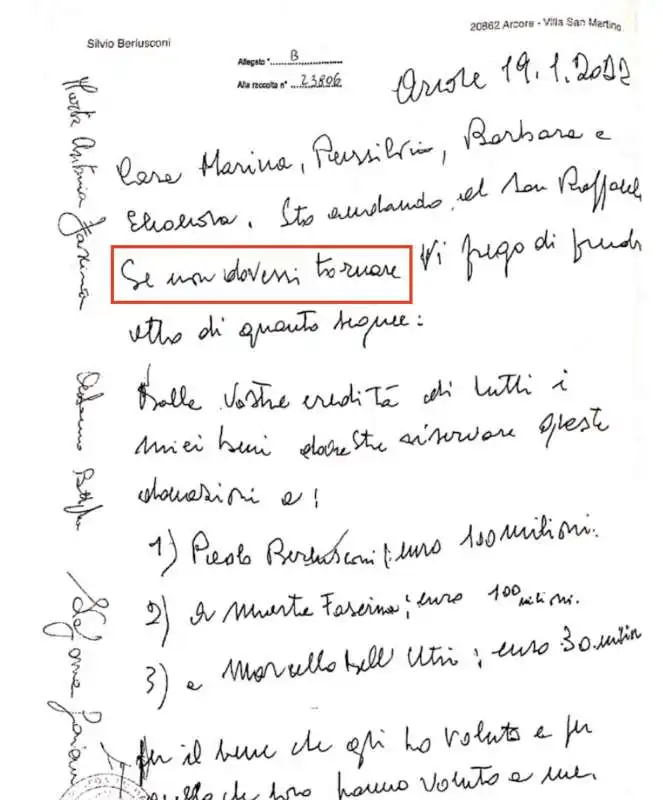 Silvio Berlusconi
20862 Arcore - Villa San Martino
Allegato "B
Alla raccolta n° 23806
Arcore 19.1.2022
Care Marina, Piersilvio, Barbara e
Eleonora, Sto andando al San Raffaele
Se non dovessi tornare Vi prego di prende
atto di quanto segue:
Dalle Vostre eredità di tutti i
miei beni dovreste riservare queste
donazioni a:
1) Paolo Berlusconi : euro 100 milioni.
2) a Marta Fascina ; euro 100 milioni.
3) a Marcello Dell'Utri ; euro 30 milioni
per il bene che gli ho voluto e per
quello che loro hanno voluto a me.
Marta Antonia Fascina